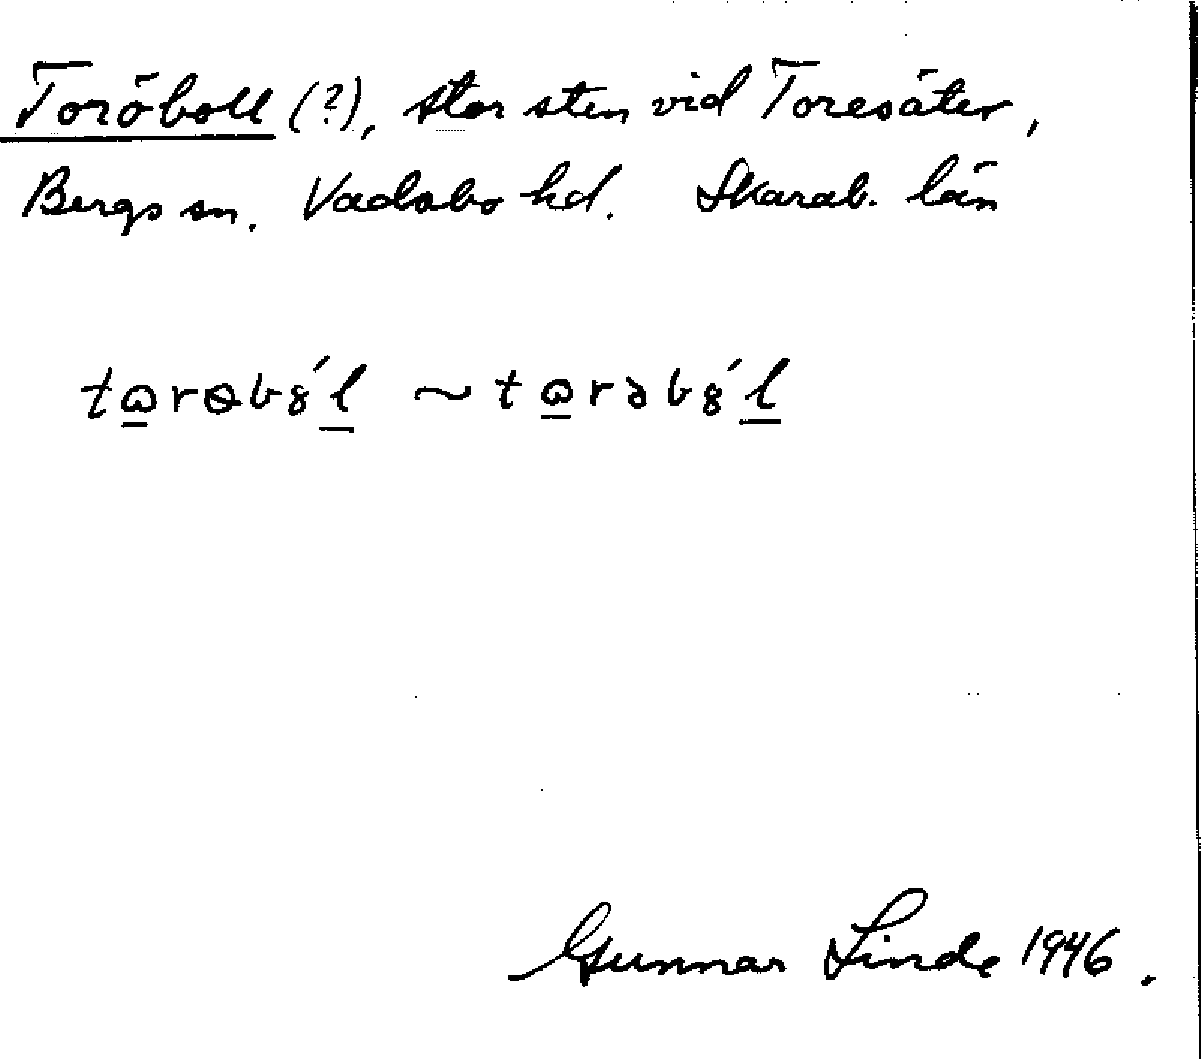 Toröboll (?), stor sten vid Toresäter,
Bergs sn. Vadsbo hd. Skarab. län
tɷ̲rɵbȣ́l̲ ~ tɷ̲rəbȣ́l̲
Gunnar Linde 1946.